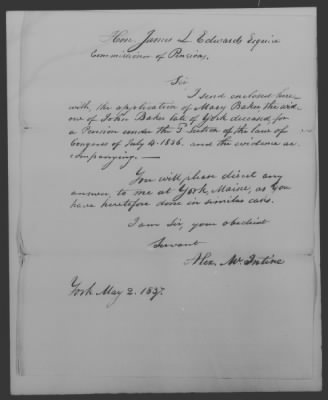 Hon. James L Edwards Esquire
Commissioner of Pensions.
Sir
I send enclosed here-
with, the application of Mary Baker the wid-
ow of John Baker late of York deceased for
a Pension under the 3d Section of the law of
Congress of July 4. 1836. and the evidence ac-
companying. —
You will please direct any
answer, to me at York, Maine, as you
have heretofore done in similar cases.
I am Sir, your obedient
Servant
Alex. McIntire
York May 2. 1837.